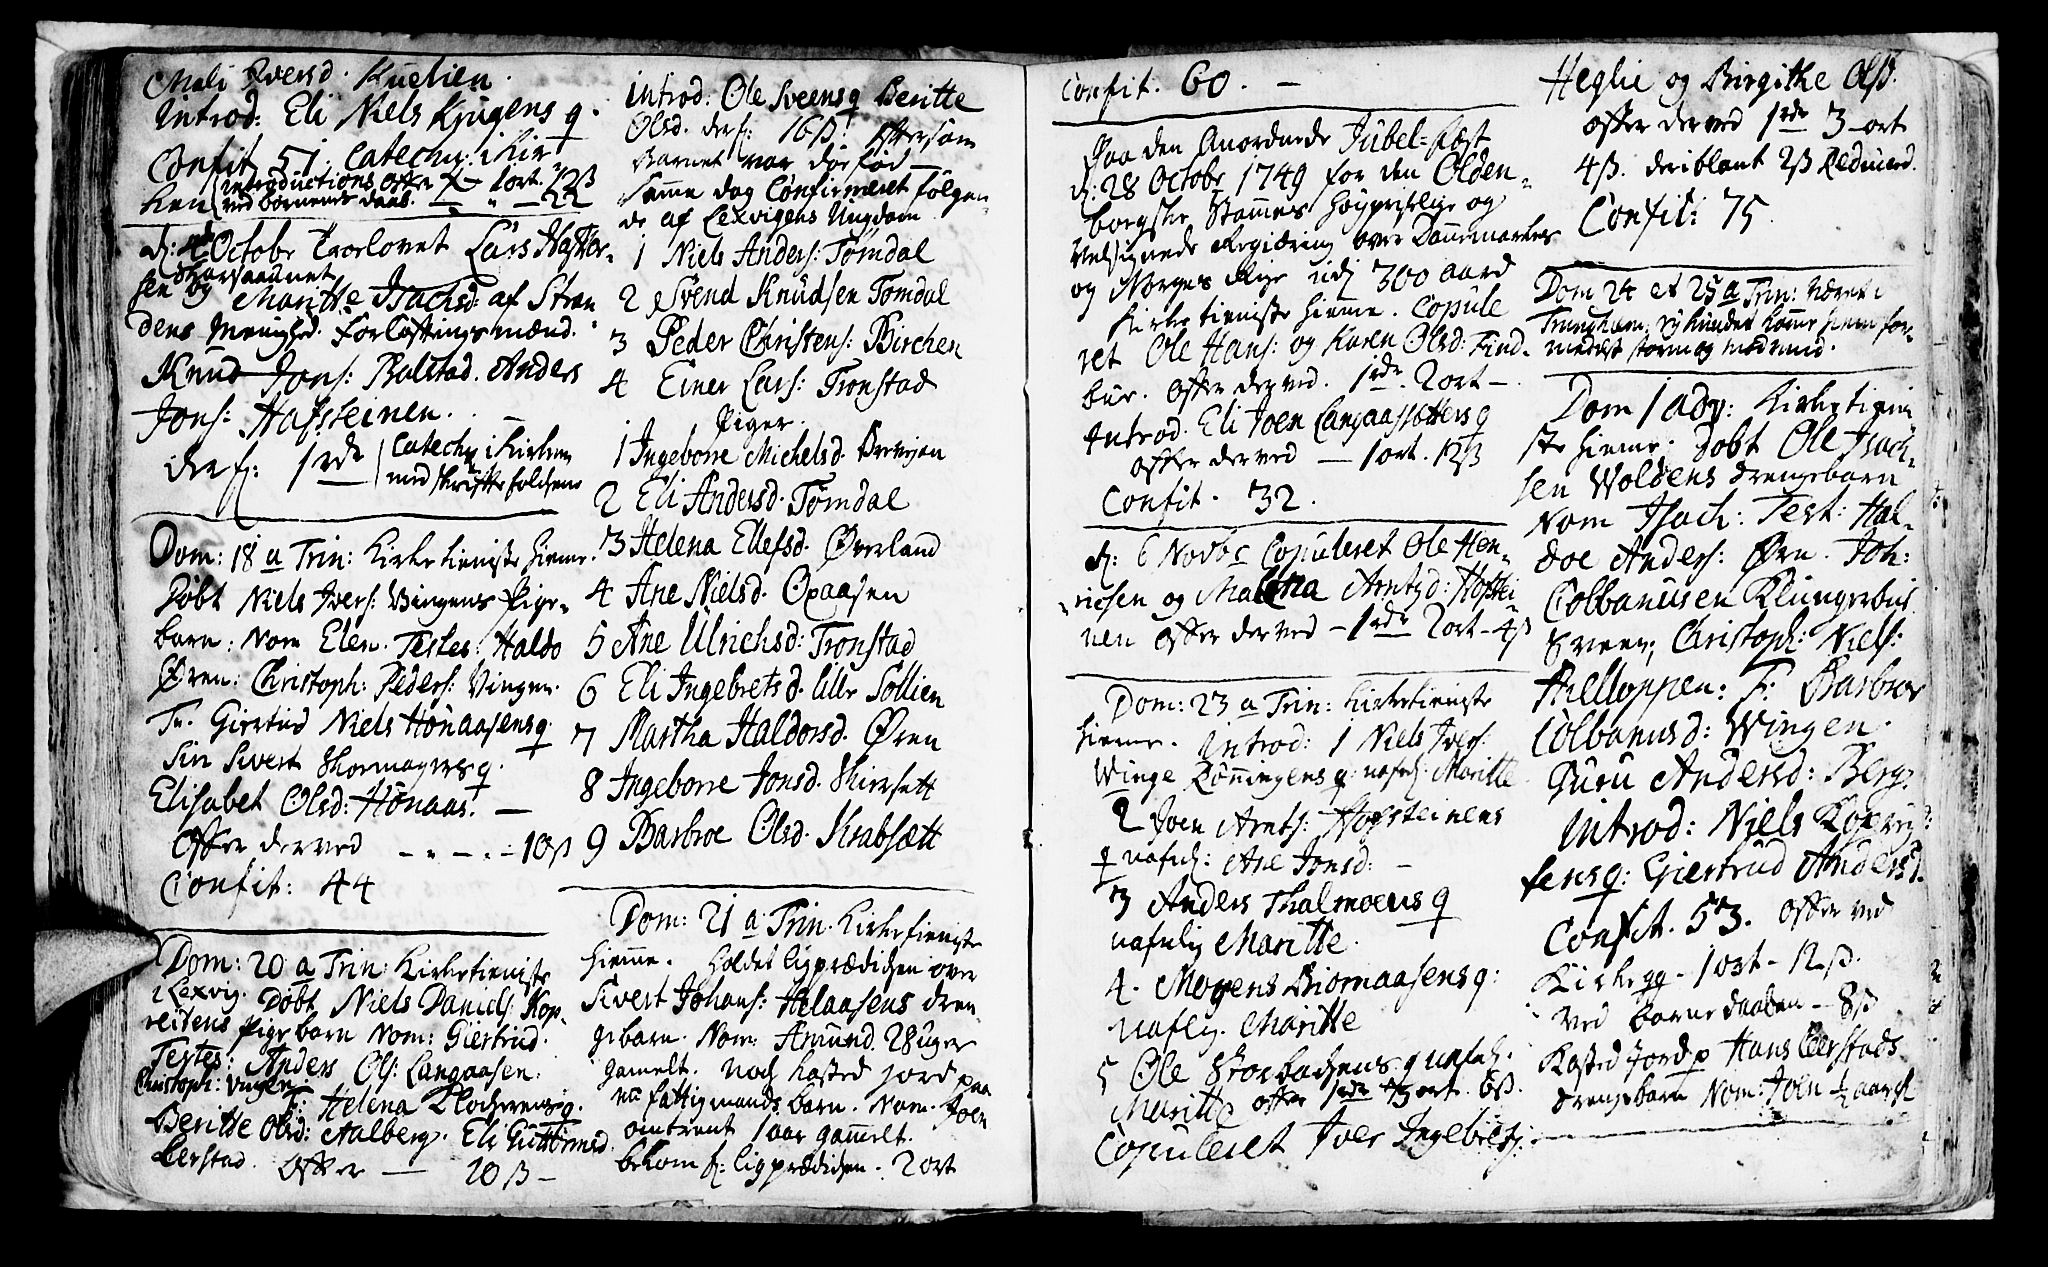 Mali Iversd. Kuelien.
Introd: Eli Niels Kjugens q.
Confit 51. Catechu: i Kir
ken Introductions offer 1 ort. 12ß
ved börnenes daab. 22
d: 4 Octobr Troelovet Lars Haftor-
sen Skarsaunet
og Maritte Isachsd: af Stran
dens Menighed. Forlöftningsmænd.
Knud Jons: Balstad. Anders
Jons: Hafsteinen.
derf: 1 rdr Catechu i Kirken
med skriftefolchene
Dom: 18 a Trin: Kirketieniste hieme.
Döbt Niels Ivers: Vingens Pige-
barn: Nom Elen. Testes: Haldo
Øren: Christoph: Peders: Vingen.
Fr. Giertrud Niels Hönaasens q
Siri Sivert Skomagers q.
Elisabet Olsd: Hönaas.
Offer derved 10ß
Confit: 44
Dom: 20 a Trin: Kirketieniste
i Lexvig. Döbt Niels Daniels: Kop-
reitens Pigebarn Nom: Giertrud.
Testes: Anders Ols: Langaasen.
Christoph: Vingen.
F: Helena Klochrens q.
Beritte Olsd: Aalberg. Eli Guttormsd.
Leerstad. Offer 20ß
Introd: Ole Sveens q Beritte
Olsd. derf: 16ß. eftersom
Barnet var dödfød
Samme dag Confirmeret fölgen-
de af Lexvigens Ungdom
1 Niels Anders: Tömdal
2 Svend Knudsen Tömdal
3 Peder Christens: Birchen
4 Einer Lars: Tronstad
Piger.
1 Ingeborre Michelsd. Brevigen
2 Eli Andersd. Tömdal
3 Helena Ellefsd. Øverland
4 Ane Nielsd. Opaasen
5 Ane Ulrichsd: Tronstad
6 Eli Ingebretsd. lille Sollien
7 Martha Haldorsd. Øren
8 Ingeborre Jonsd. Skirsett
9 Barbroe Olsd. Krabsætt
Dom: 21 a Trin. Kirketieniste
hieme. Holdet ligprædichen over
Sivert Johans: Helaasens dren
gebarn. Nom: Amund. 28 uger
gamelt. Noch kasted jord paa
en fattigmands barn. Nom. Joen
omtrent 1 aar gammelt.
bekom f: ligprædichen. 2 ort
Confit. 60.
Paa den Anordnede Jubel-Fæst
d: 28 Octobr 1749 for den Olden-
borgske Stammes Höypriselige og
Velsignede Regiæring over Dannemarkes
og Norges Rige udj 300 aard
Kirketieniste hieme. Copule
ret Ole Hans: og Karen Olsd: Find-
bur. Offer derved. 1 rdr. 2 ort
Introd. Eli Joen Langaassætters q
offer derved 1 ort. 12ß
Confit. 32.
d: 6 Novbr Copuleret Ole Hen-
ricsen og Malena Arntzd: Hofstei
nen Offer derved 1 rdr 2 ort 4ß
Dom: 23 a Trin: Kirketieniste
hieme. Introd: 1 Niels Ivers:
Winge Rönningens q nafnl: Maritte.
2 Joen Arnts: Hofsteinens
q nafnl: Ane Jonsd:
3 Anders Thalmoens q
nafnlig Maritte.
4. Mogens Biornaasens q:
Naflig. Maritte
5 Ole Storbachens q nafnl.
Maritte offer 1 rdr 3 ort 6ß.
Copuleret Iver Ingebrets:
Heglie og Birgithe Olsd.
offer derved 1 rdr 3 ort
4ß. deriblant 2ß Reduced.
Confit: 75.
Dom 24 et 25 a Trin: Været i
Trundhiem: ey kundet komme hiem for-
medelst storm og modvind.
Dom 1 adv: Kirketieni
ste hieme. Döbt Ole Isach-
sen Woldens drengebarn
Nom Isach: Test: Hal-
doe Anders: Øren. Joh:
Colbanusen Klungerbus
Sveen; Christoph: Niels:
Helloppen: F: Barbroe
Colbanusd: Wingen.
Guru Andersd: Berg.
Introd: Niels Kopreit-
sens q: Giertrud Andersd.
Confit. 53. Offer ved
Kirkegg - 1 ort - 12ß.
Ved barnedaaben - 8ß
Kasted Jord p Hans Leerstads
drengebarn Nom: Joen ½ aar gl